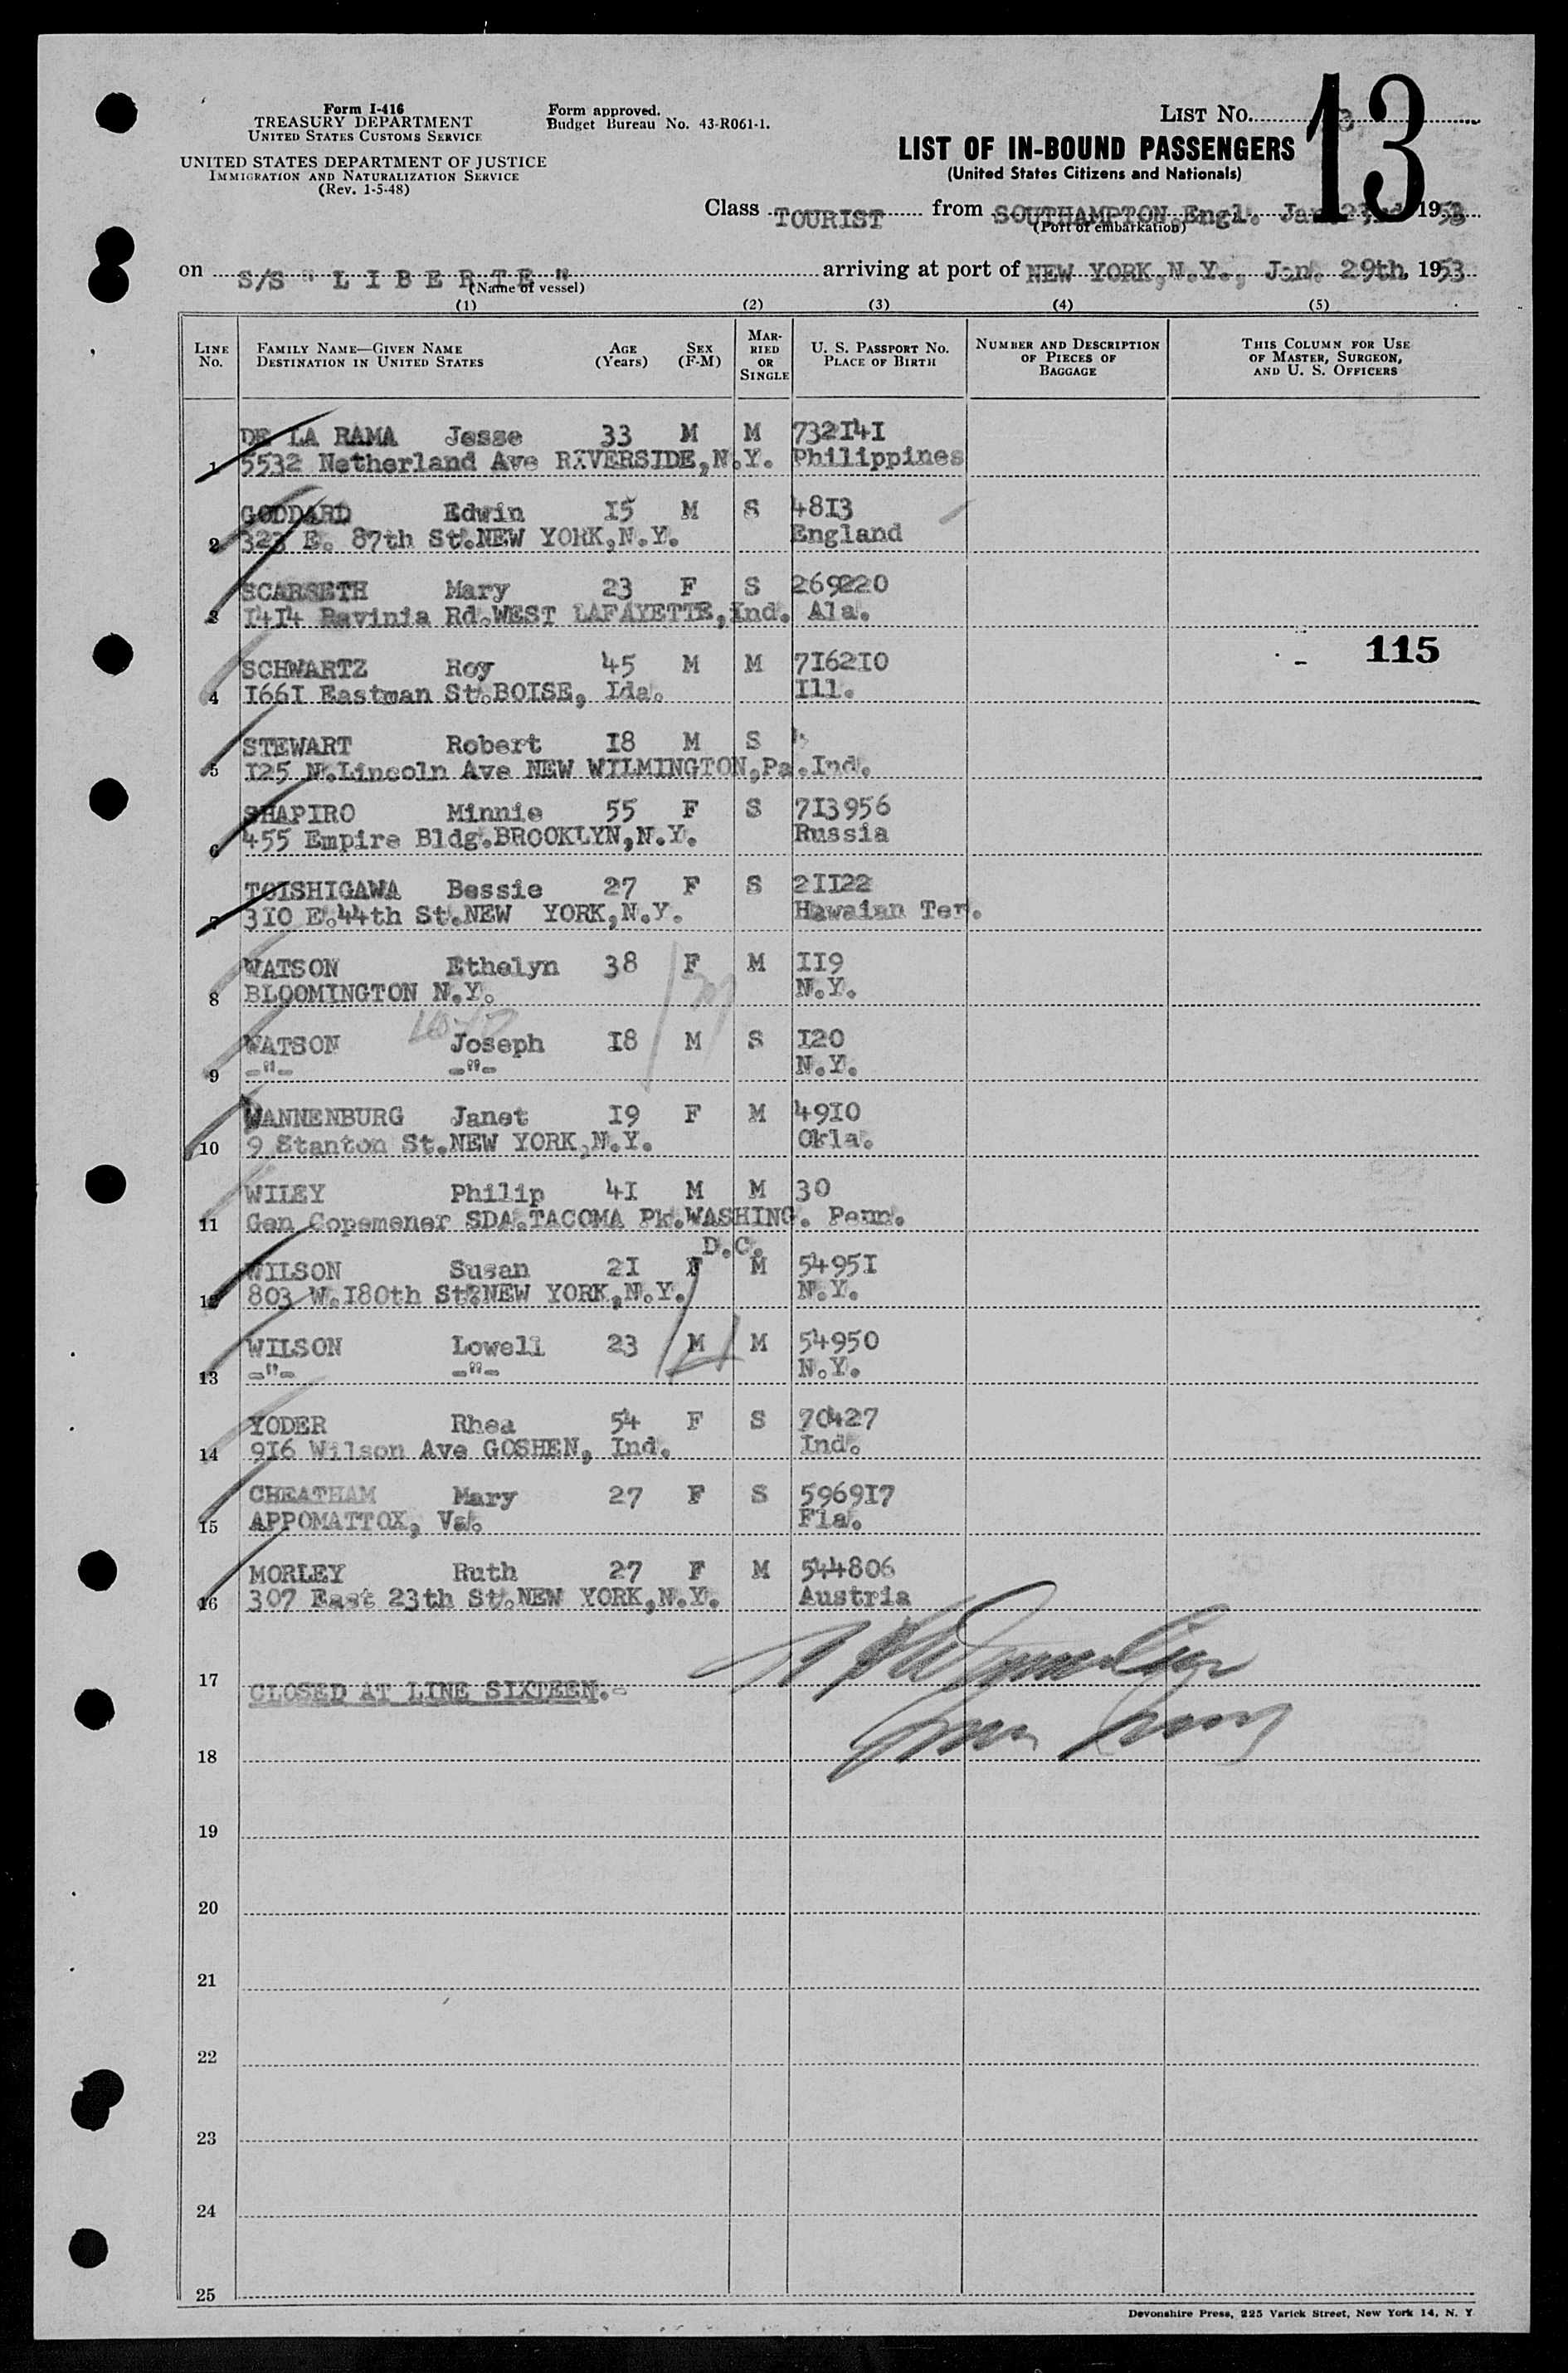 Form I-416
TREASURY DEPARTMENT
UNITED STATES CUSTOMS SERVICE
UNITED STATES DEPARTMENT OF JUSTICE
IMMIGRATION AND NATURALIZATION SERVICE
(Rev. 1-5-48)
Form approved.
Budget Bureau No. 43-R061-1.
LIST NO. 13
LIST OF IN-BOUND PASSENGERS
(United States Citizens and Nationals)
Class TOURIST from SOUTHAMPTON.Engl. Jan. 23rd 1953
(Port of embarkation)
on S/S " L I B E R T E " arriving at port of NEW YORK,N.Y., Jan. 29th, 1953
(Name of vessel)
(1) (2) (3) (4) (5)
LINE NO. FAMILY NAME—GIVEN NAME DESTINATION IN UNITED STATES AGE (Years) SEX (F-M) MARRIED OR SINGLE U. S. PASSPORT NO. PLACE OF BIRTH NUMBER AND DESCRIPTION OF PIECES OF BAGGAGE THIS COLUMN FOR USE OF MASTER, SURGEON, AND U. S. OFFICERS
DE LA RAMA Jesse 33 M M 732I4I
1 5532 Netherland Ave RIVERSIDE,N.Y. Philippines
GODDARD Edwin I5 M S 48I3
2 323 E. 87th St.NEW YORK,N.Y. England
SCARSETH Mary 23 F S 269220
3 I4I4 Ravinia Rd.WEST LAFAYETTE,Ind. Ala.
SCHWARTZ Roy 45 M M 7I62I0
115
4 I66I Eastman St.BOISE, Ida. Ill.
STEWART Robert I8 M S
5 I25 N.Lincoln Ave NEW WILMINGTON,Pa.Ind.
SHAPIRO Minnie 55 F S 7I3956
6 455 Empire Bldg.BROOKLYN,N.Y. Russia
TOISHIGAWA Bessie 27 F S 2II22
7 3I0 E.44th St.NEW YORK,N.Y. Hawaian Ter.
WATSON Ethelyn 38 F M II9
8 BLOOMINGTON N.Y. N.Y.
WATSON Joseph I8 M S I20
9 -"- -"- N.Y.
WANNENBURG Janet I9 F M 49I0
10 9 Stanton St.NEW YORK,N.Y. Okla.
WILEY Philip 4I M M 30
11 Gen Copemener SDA.TACOMA Pk.WASHING. Penn.
D.C.
WILSON Susan 2I F M 5495I
12 803 W.I80th St.NEW YORK,N.Y. N.Y.
WILSON Lowell 23 M M 54950
13 -"- -"- N.Y.
YODER Rhea 54 F S 70427
14 9I6 Wilson Ave GOSHEN, Ind. Ind.
CHEATHAM Mary 27 F S 5969I7
15 APPOMATTOX, Va. Fla.
MORLEY Ruth 27 F M 544806
16 307 East 23th St.NEW YORK,N.Y. Austria
17 CLOSED AT LINE SIXTEEN.-
18
19
20
21
22
23
24
25
Devonshire Press, 225 Varick Street, New York 14, N. Y